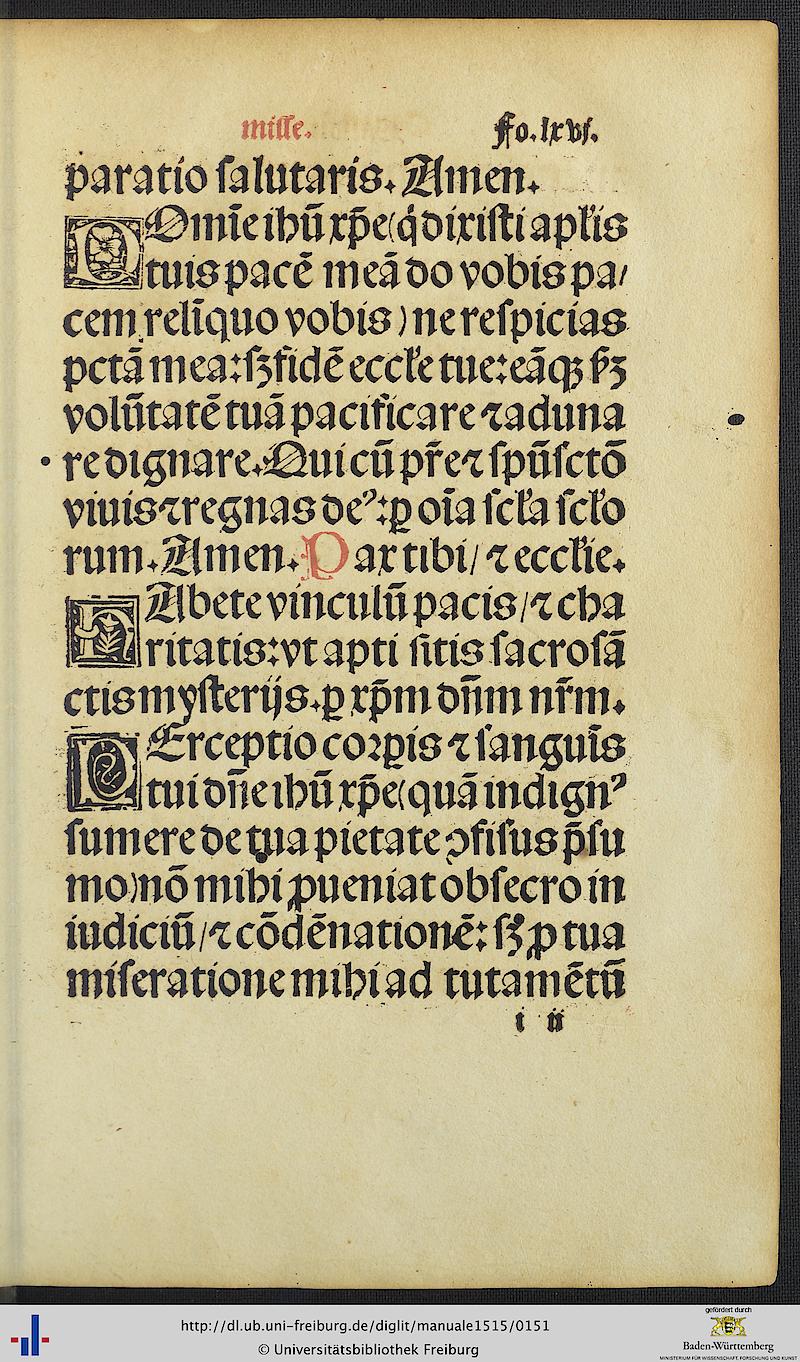 misse. Fo.lxvj.
paratio salutaris. Amen.
DOmīe ihū xp̄e(q̇ dixisti apłis
tuis pacē meā do vobis pa/
cem relīquo vobis) ne respicias
pctā mea:sꝫ fidē eccłe tue:eāqꝫ ẜꝫ
volūtatē tuā pacificare ⁊ aduna
re dignare. Qui cū pr̄e ⁊ spūsctō
viuis ⁊ regnas deꝰ:ꝑ oīa scła scło
rum. Amen. Pax tibi/ ⁊ eccłie.
HAbete vinculū pacis/⁊ cha
ritatis:vt apti sitis sacrosā
ctis mysterijs. ꝑ xp̄m dn̄m nr̄m.
PErceptio corꝑis ⁊ sanguīs
tui dn̄e ihū xp̄e(quā indignꝰ
sumere de tua pietate ꝯfisus p̄su
mo)nō mihi ꝓueniat obsecro in
iudiciū/⁊ cōdēnationē: sꝫ ꝓ tua
miseratione mihi ad tutamētū
i ii
http://dl.ub.uni-freiburg.de/diglit/manuale1515/0151
© Universitätsbibliothek Freiburg
gefördert durch
Baden-Württemberg
MINISTERIUM FÜR WISSENSCHAFT, FORSCHUNG UND KUNST